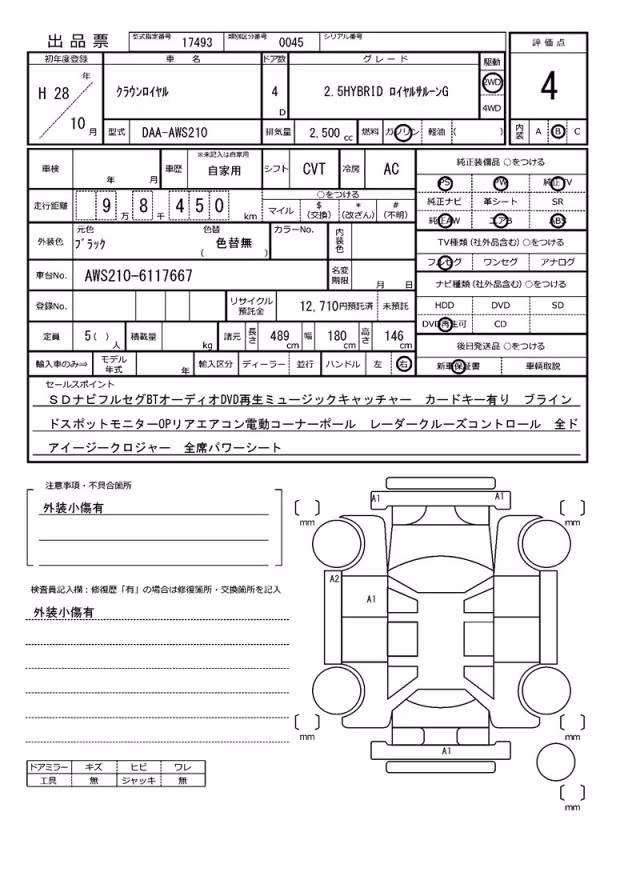 出品票 型式指定番号 17493 類別区分番号 0045 シリアル番号
初年度登録 車名 ドア数 グレード 駆動 評価点
H 28 年 10 月 クラウンロイヤル 4 D 2.5HYBRID ロイヤルサルーンG 2WD 4WD 4
型式 DAA-AWS210 排気量 2,500 cc 燃料 ガソリン 軽油 ( ) 内装 A B C
車検 年 月 車歴 ※未記入は自家用 自家用 シフト CVT 冷房 AC 純正装備品 ○をつける
PS PW 純正TV
走行距離 9 万 8 千 4 5 0 km ○をつける マイル $(交換) *(改ざん) #(不明) 純正ナビ 革シート SR
純正AW エアB ABS
外装色 元色 ブラック 色替 色替無 ( ) カラーNo. 内装色 TV種類(社外品含む)○をつける
フルセグ ワンセグ アナログ
車台No. AWS210-6117667 名変期限 月 日 ナビ種類(社外品含む)○をつける
登録No. リサイクル預託金 12,710円預託済 未預託 HDD DVD SD
DVD再生可 CD
定員 5( )人 積載量 kg 諸元 長さ 489 cm 幅 180 cm 高さ 146 cm 後日発送品 ○をつける
輸入車のみ⇒ モデル年式 年 輸入区分 ディーラー 並行 ハンドル 左 右 新車保証書 車輌取説
セールスポイント
SDナビフルセグBTオーディオDVD再生ミュージックキャッチャー カードキー有り ブライン
ドスポットモニターOPリアエアコン電動コーナーポール レーダークルーズコントロール 全ド
アイージークロジャー 全席パワーシート
注意事項・不具合箇所
外装小傷有
検査員記入欄:修復歴「有」の場合は修復箇所・交換箇所を記入
外装小傷有
A1 A1
mm mm
A2
A1
mm mm
A1
mm
ドアミラー キズ ヒビ ワレ
工具 無 ジャッキ 無